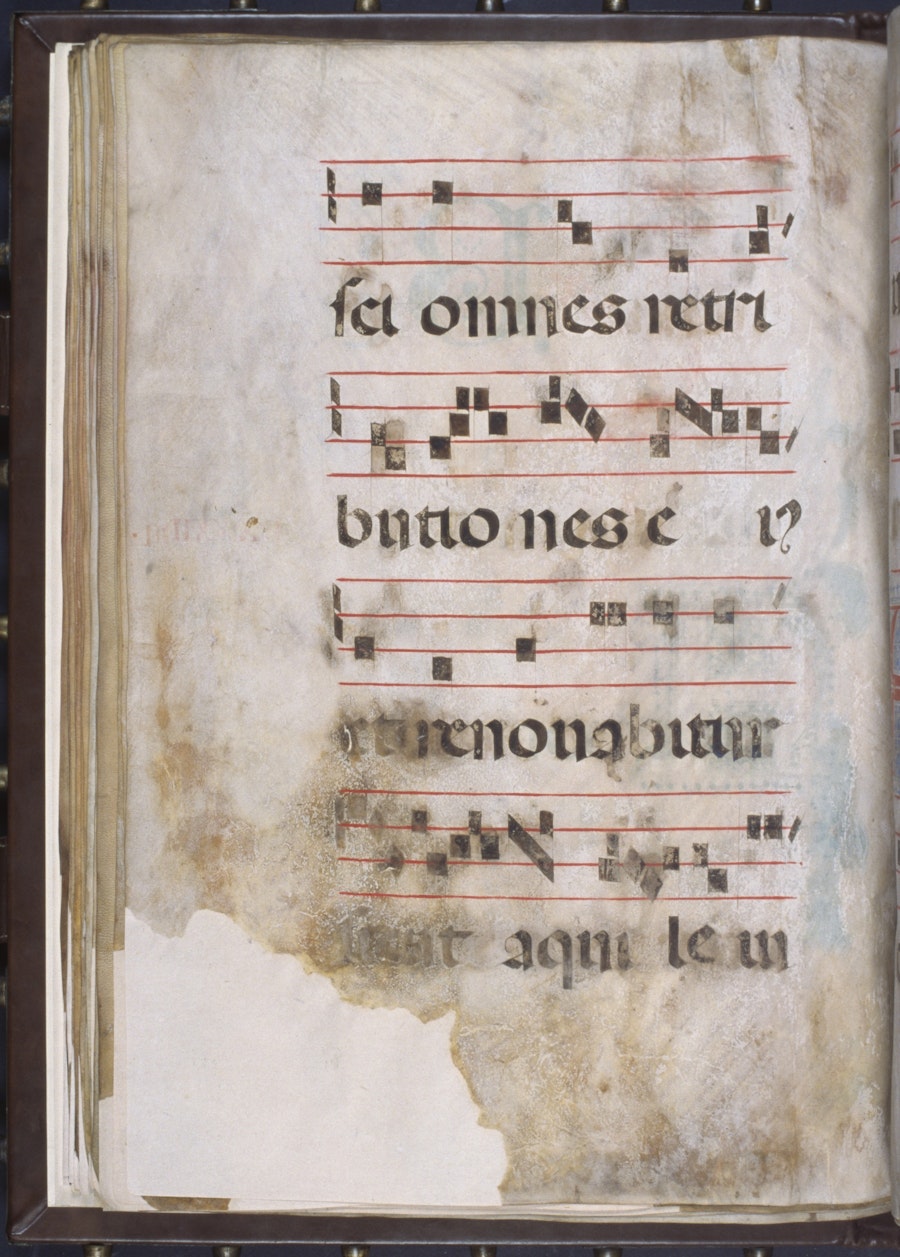 ſci omnes retri
butio nes e iꝰ
et renouabitur
aqui le iu